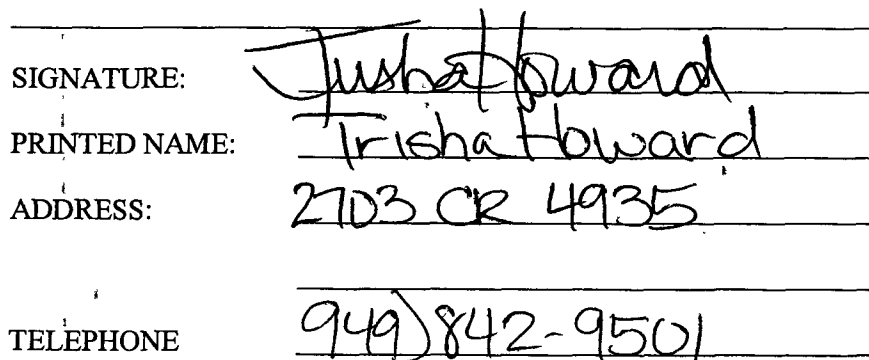 SIGNATURE: Trisha Howard
PRINTED NAME: Trisha Howard
ADDRESS: 2703 CR 4935
TELEPHONE 949) 842-9501